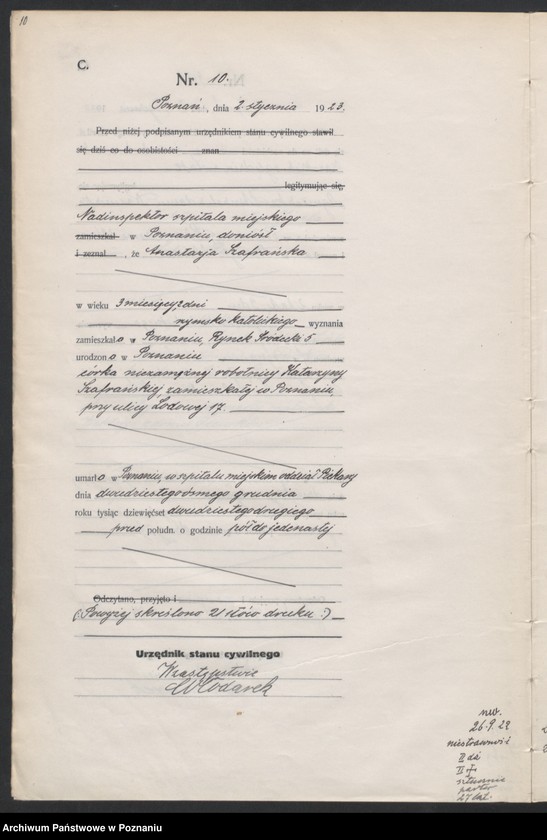 10
C.
Nr. 10.
Poznań, dnia 2 stycznia 1923.
Przed niżej podpisanym urzędnikiem stanu cywilnego stawił
się dziś co do osobistości znan
legitymując się,
Nadinspektor szpitala miejskiego
zamieszkał w Poznaniu, doniósł
i zeznał , że Anastazja Szafrańska
w wieku 3 miesięcy, 2 dni
rzymsko katolickiego wyznania
zamieszkała w Poznaniu, Rynek Śródecki 5
urodzona w Poznaniu
córka niezamężnej robotnicy Katarzyny
Szafrańskiej zamieszkałej w Poznaniu,
przy ulicy Lodowej 17.
umarła w Poznaniu, w szpitalu miejskim oddział Piekary
dnia dwudziestego ósmego grudnia
roku tysiąc dziewięćset dwudziestego drugiego
przed połudn. o godzinie pół do jedenastej
Odczytano, przyjęto i
(: Powyżej skreślono 21 słów druku :)
Urzędnik stanu cywilnego
W zastępstwie
Włodarek
26.9.22
27 lat.
Archiwum Państwowe w Poznaniu